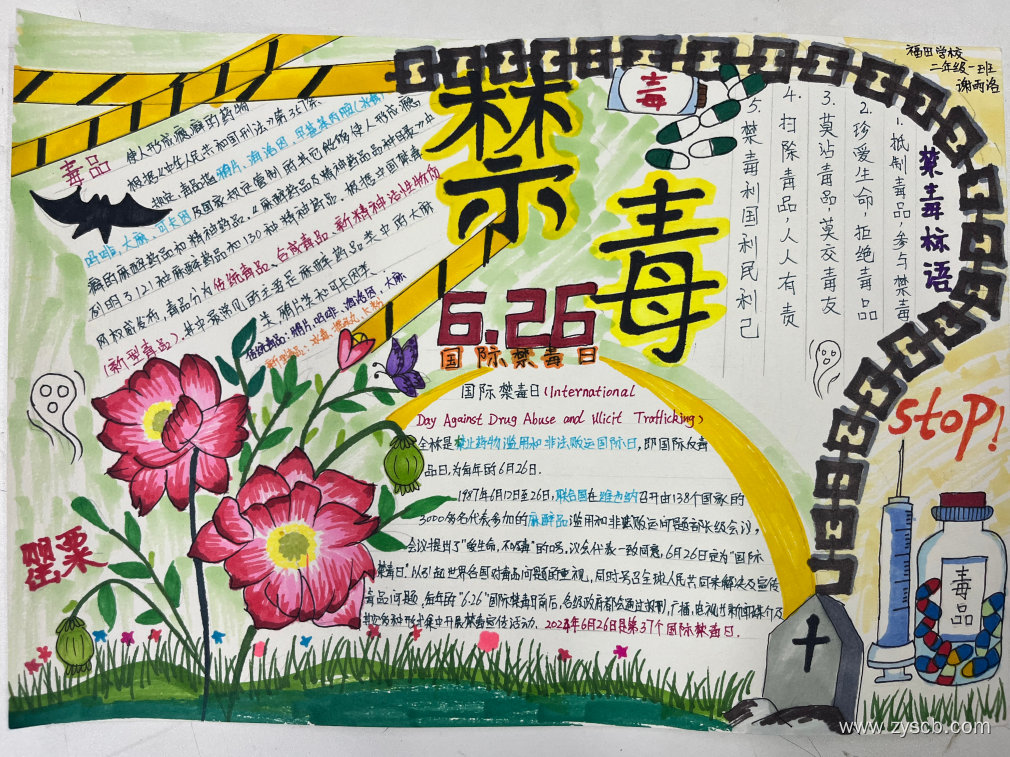 福田学校
二年级一班
谢雨洛
禁毒
毒
6.26
国际禁毒日
禁毒标语
1.抵制毒品,参与禁毒
2.珍爱生命,拒绝毒品
3.莫沾毒品,莫交毒友
4.扫除毒品,人人有责
5.禁毒利国利民利己
毒品
使人形成瘾癖的药物
根据《中华人民共和国刑法》第357条
规定,毒品指鸦片、海洛因、甲基苯丙胺(冰毒)
吗啡、大麻、可卡因及国家规定管制的其它能够使人形成瘾
癖的麻醉药品和精神药品。《麻醉药品及精神药品品种目录》中
列明了121种麻醉药品和130种精神药品。根据中国禁毒
网权威发布,毒品分为传统毒品、合成毒品、新精神活性物质
(新型毒品)。其中最常见的主要是麻醉药品类中的大麻
类、鸦片类和可卡因类
传统毒品:鸦片、吗啡、海洛因、大麻
国际禁毒日(International
Day Against Drug Abuse and Illicit Trafficking)
全称是禁止药物滥用和非法贩运国际日,即国际反毒
品日,为每年的6月26日.
1987年6月12日至26日,联合国在维也纳召开由138个国家的
3000多名代表参加的麻醉品滥用和非法贩运问题部长级会议,
会议提出了"爱生命,不吸毒"的口号,议会代表一致同意,6月26日定为"国际
禁毒日"以引起世界各国对毒品问题的重视,同时号召全球人民共同来解决及宣传
毒品问题,每年的"6.26"国际禁毒日前后,各级政府都会通过报刊,广播,电视
等各种形式集中开展禁毒宣传活动.2024年6月26日是第37个国际禁毒日.
罂粟
stop!
毒品
www.zyscb.com